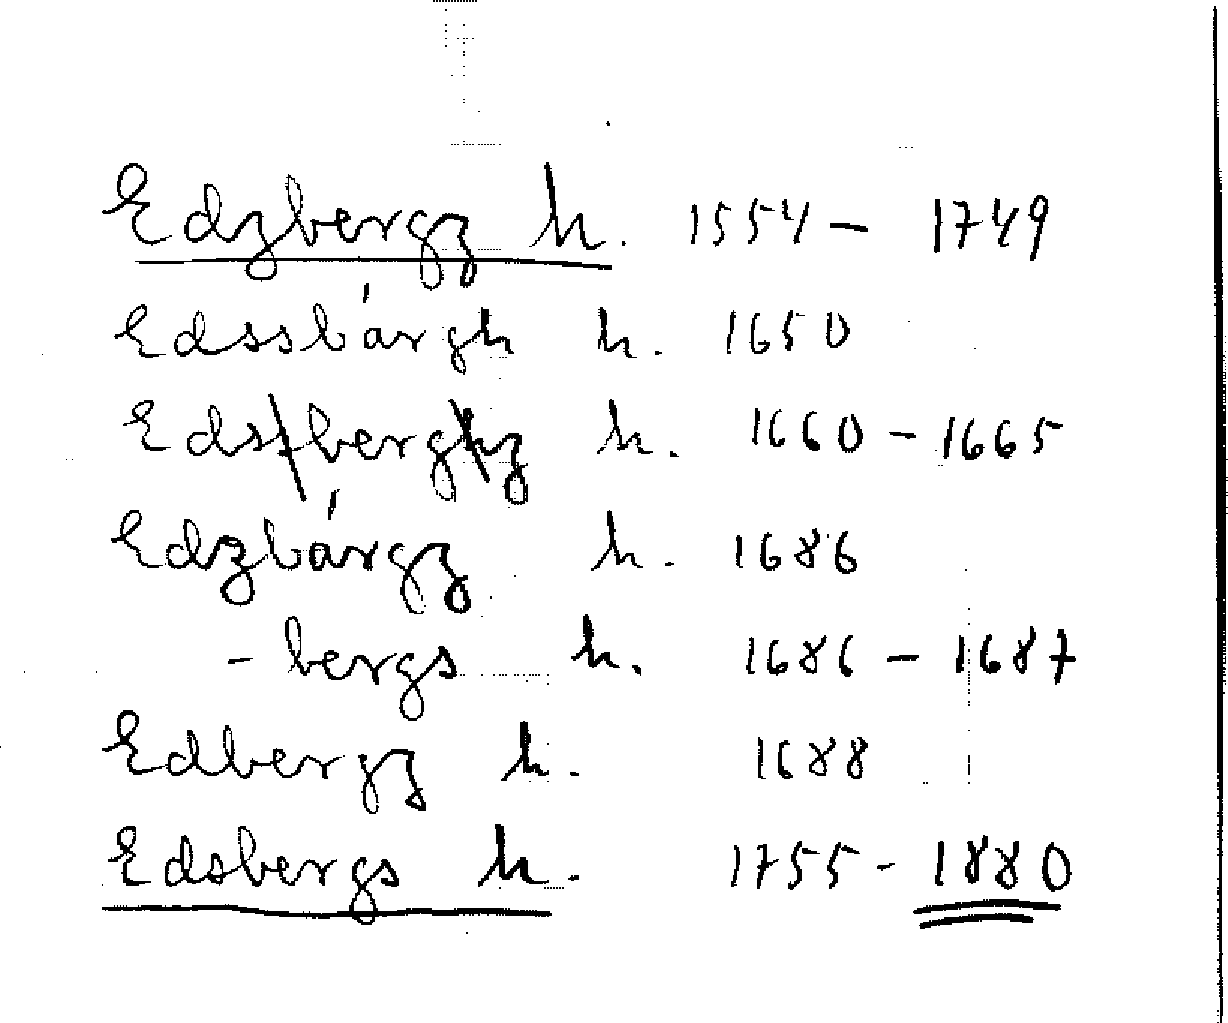 Edzbergz h. 1554 - 1749
Edssbárgh h. 1650
Eds/berghz h. 1660 - 1665
Edzbárgz h. 1686
- bergs h. 1686 - 1687
Edbergz h. 1688
Edsbergs h. 1755 - 1880